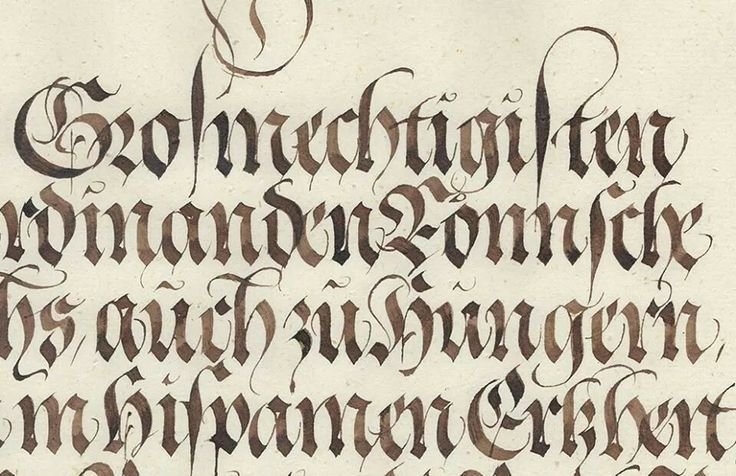 Grosmechtigisten
rdinanden Römnsche
hs, auch zu Hungern,
m Hispamen Erkhert